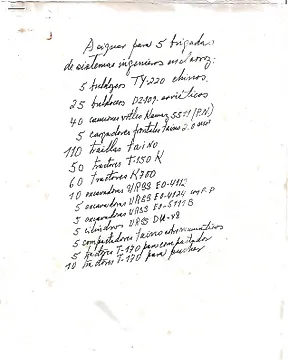 Asignar para 5 brigadas
de sistemas ingenieros en el arroz:
5 buldozers TY-220 chinos.
25 buldozers DZ-109. soviéticos
40 camiones volteo Kamaz 5511 (P.N)
5 cargadores frontales taino 2.0
110 traillas taino
50 tractores T-150 K
60 tractores K700
10 excavadoras URSS EO-4112
5 excavadoras URSS EO-4124
5 excavadoras URSS EO-5111 B
5 cilindros URSS DU-48
5 compactadores taino
5 tractores T-170 para compactador
10 tractores T-170 para